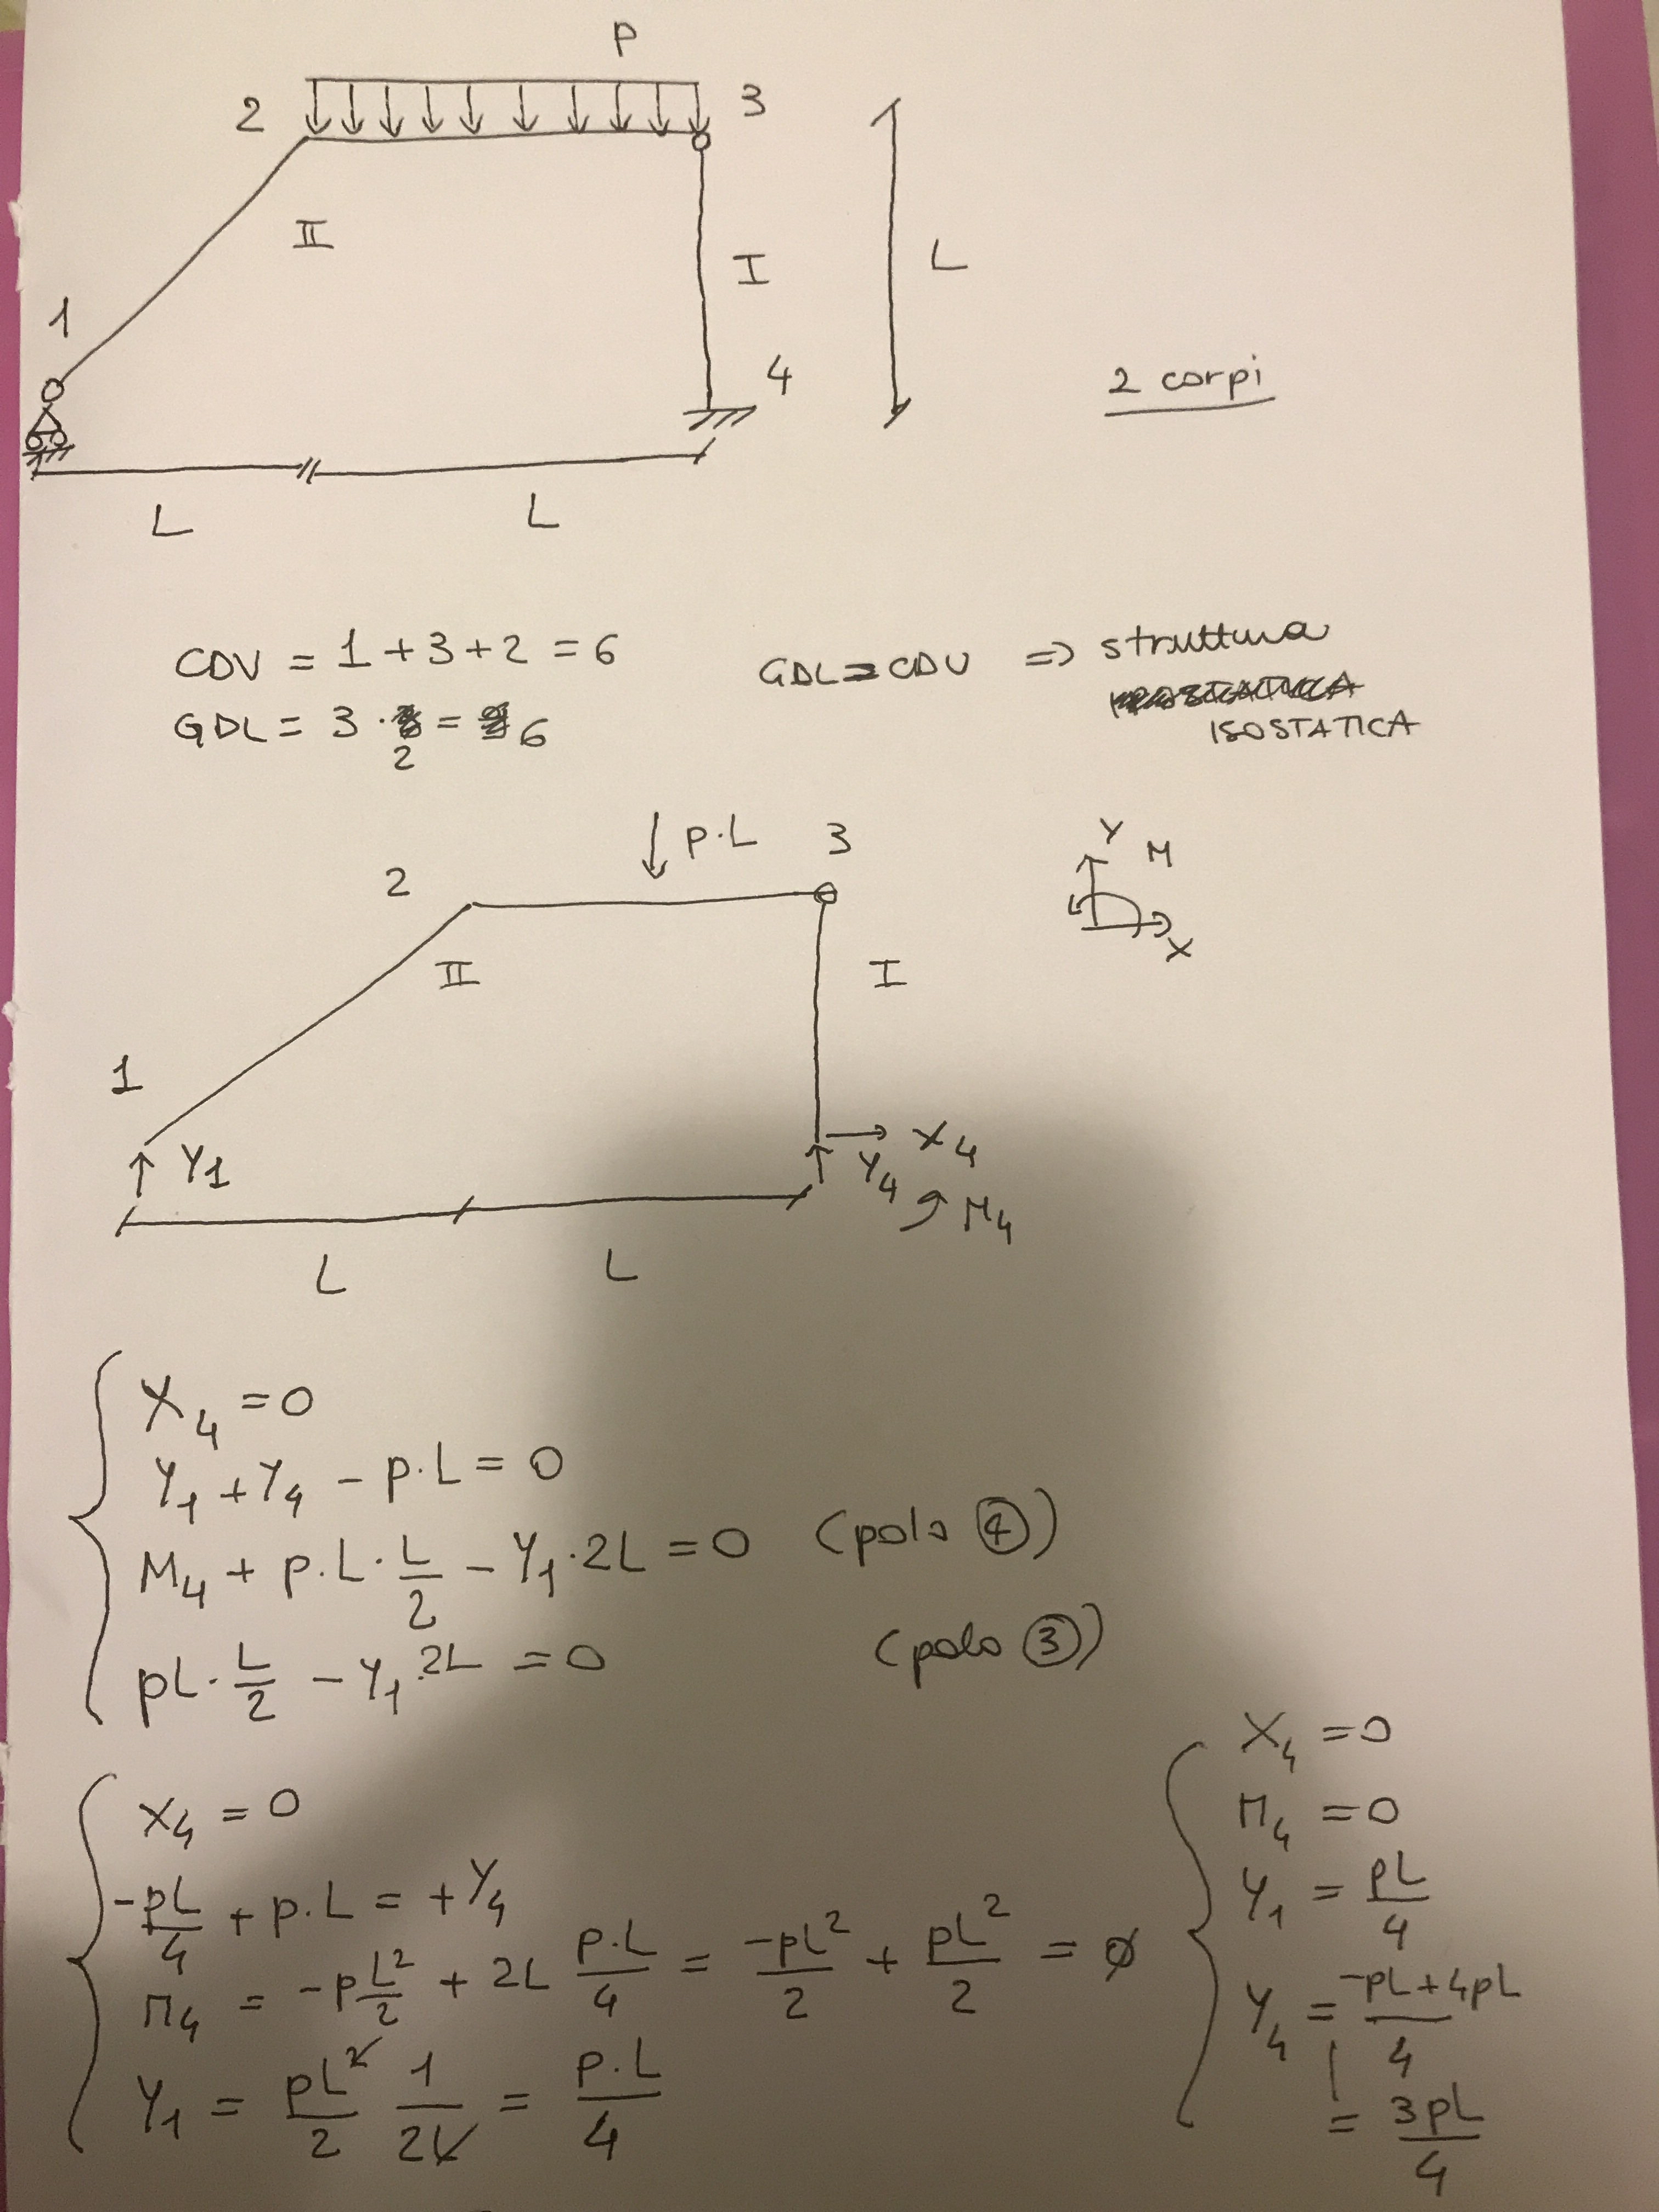 P
2
3
II
I
L
1
4
2 corpi
L
L
CDV = 1 + 3 + 2 = 6
GDL = CDV => struttura
GDL = 3 · 2 = 6
ISOSTATICA
p.L
3
Y
M
2
X
II
I
1
Y1
X4
Y4
M4
L
L
X4 = 0
Y1 + Y4 - p.L = 0
M4 + p.L. L/2 - Y1.2L = 0 (polo ④)
pL. L/2 - Y1.2L = 0 (polo ③)
X4 = 0
-pL/4 + p.L = +Y4
M4 = -p L²/2 + 2L p.L/4 = -pL²/2 + pL²/2 = ø
Y1 = pL²/2 1/2L = p.L/4
X4 = 0
M4 = 0
Y1 = pL/4
Y4 = -pL+4pL/4
= 3pL/4